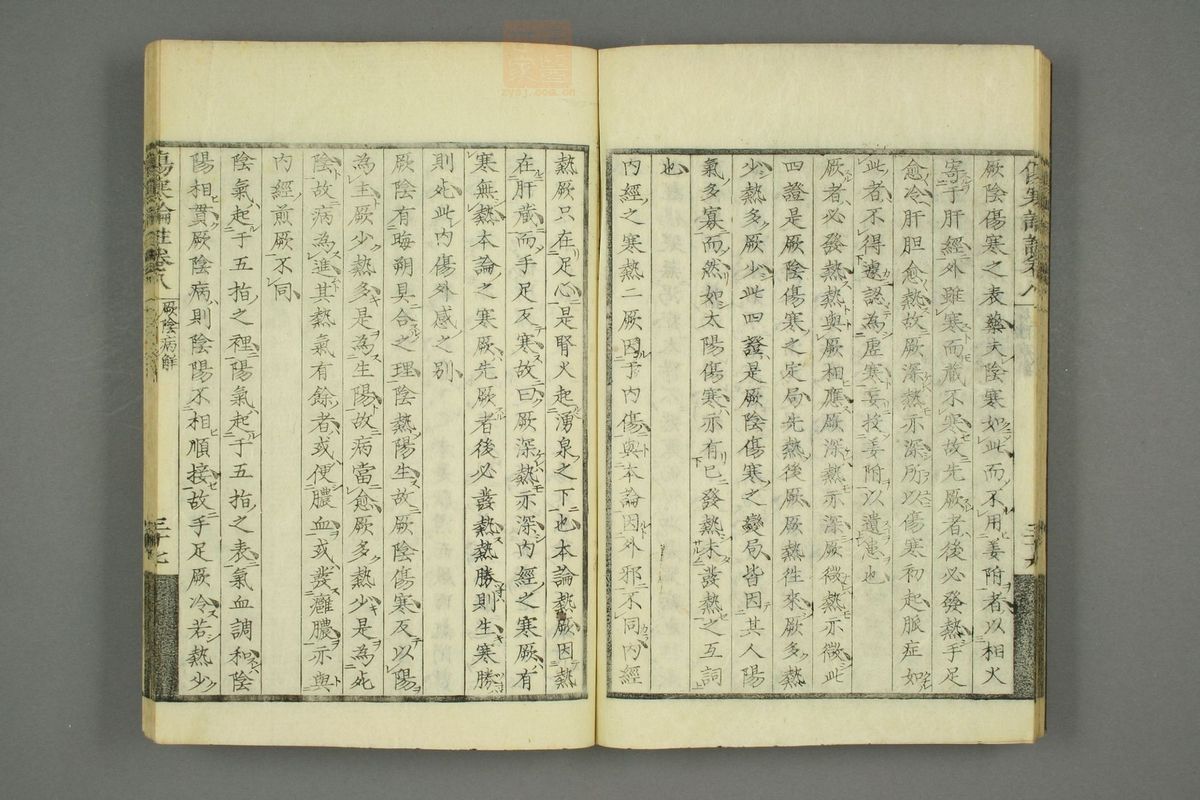 厥陰傷寒之表藥大陰寒如此而不用姜附者以相火
寄于肝經外雖寒而藏不寒故先厥者後必發熱手足
愈冷肝胆愈熱故厥深熱亦深所以傷寒初起脈症如
此者不得遽認為虛寒妄投姜附以遺患也
厥者必發熱熱與厥相應厥深熱亦深厥微熱亦微此
四證是厥陰傷寒之定局先熱後厥厥熱徃來厥多熱
少熱多厥少此四證是厥陰傷寒之變局皆因其人陽
氣多寡而然如太陽傷寒亦有已發熱未發熱之互詞
也
内經之寒熱二厥因于内傷與本論因外邪不同内經
熱厥只在足心是腎火起湧泉之下也本論熱厥因熱
在肝藏而手足反寒故曰厥深熱亦深内經之寒厥有
寒無熱本論之寒厥先厥者後必發熱熱勝則生寒勝
則死此内傷外感之別
厥陰有晦朔具合之理陰熱陽生故厥陰傷寒反以陽
為主厥少熱多是為生陽故病當愈厥多熱少是為死
陰故病為進其熱氣有餘者或便膿血或發癰膿亦與
内經煎厥不同
陰氣起于五指之裡陽氣起于五指之表氣血調和陰
陽相貫厥陰病則陰陽不相順接故手足厥冷若熱少
傷寒論註卷八
厥陰病解
三十七